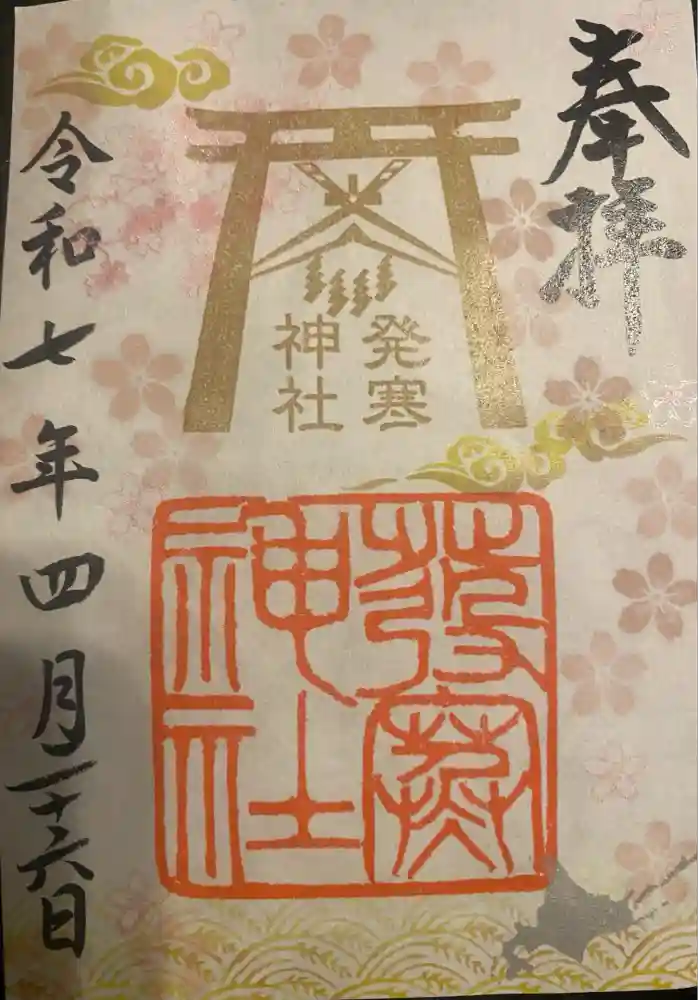 奉拝
発寒
神社
發寒
神社
令和七年四月二十六日